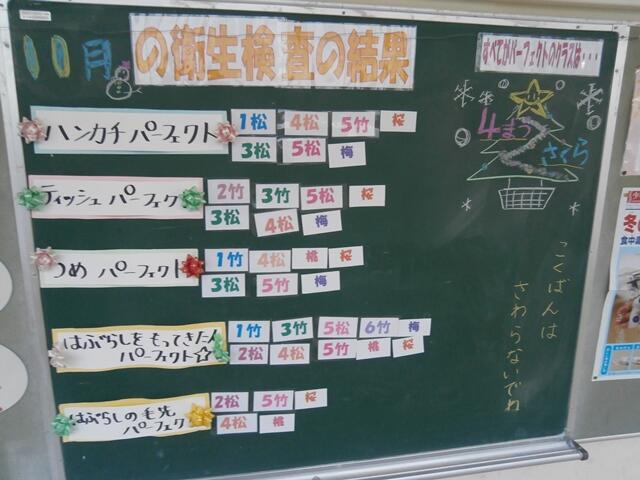 11月の衛生検査の結果
すべてがパーフェクトのクラスは...
4まつ
さくら
ハンカチ パーフェクト
1松 4松 5竹 桜
3松 5松 梅
ティッシュ パーフェクト
2竹 3竹 5松 桜
3松 4松 梅
つめ パーフェクト
1竹 4松 桃 桜
3松 5竹 梅
はぶらしをもってきた人
パーフェクト☆
1竹 3竹 5松 6竹 梅
2松 4松 5竹 桃 桜
はぶらしの毛先
パーフェク
2松 5竹 桜
4松 桃
こくばんは
さわらないでね